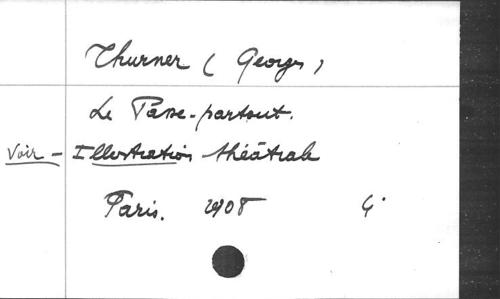 Thurner (Georges)
Le Passe-partout.
Voir - Illustration théâtrale
Paris. 1908 4°